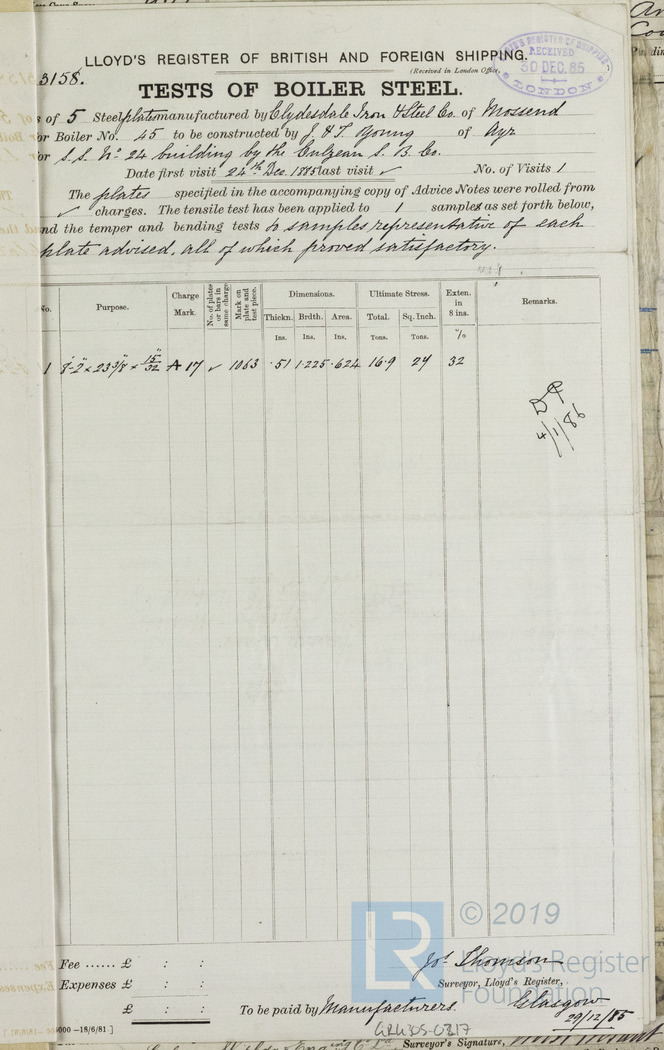 LLOYD'S REGISTER OF BRITISH AND FOREIGN SHIPPING.
(Received in London Office,
LLOYD'S REGISTER OF SHIPPING
RECEIVED
30 DEC. 85
LONDON
3158.
TESTS OF BOILER STEEL.
s of 5 Steel plates manufactured by Clydesdale Iron & Steel Co. of Mossend
or Boiler No. 45 to be constructed by J & T. Young of Ayr
or S.S. No. 24 building by the Culzean S. B. Co.
Date first visit 24th Dec. 1885 last visit ✓ No. of Visits 1
The plates specified in the accompanying copy of Advice Notes were rolled from
✓ charges. The tensile test has been applied to 1 samples as set forth below,
nd the temper and bending tests to samples representative of each
plate advised, all of which proved satisfactory.
No. Purpose. Charge Mark. No. of plates or bars in same charge Mark on plate and test piece. Dimensions. Ultimate Stress. Exten. in 8 ins. Remarks.
Thickn. Brdth. Area. Total. Sq. Inch.
Ins. Ins. Ins. Tons. Tons. %
1 8'-2" × 23 3/8" × 15/32" A 17 ✓ 1063 .51 1.225 .624 16.9 27 32
4/1/86
© 2019
LR
Lloyd's Register
Foundation
Fee ...... £ : :
Expenses £ : :
£ : :
Jos. Thomson
Surveyor, Lloyd's Register,
To be paid by Manufacturers. Glasgow
29/12/85
5000 —18/6/81 ]
Surveyor's Signature,